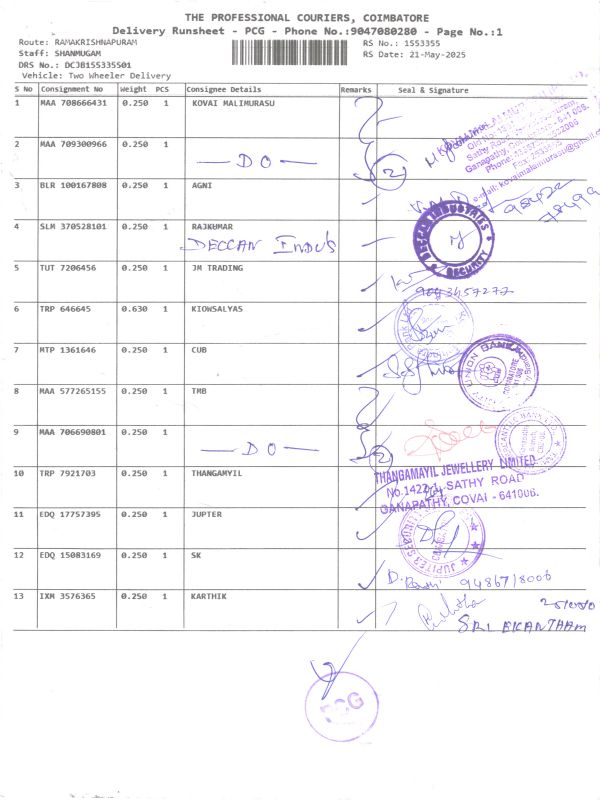 THE PROFESSIONAL COURIERS, COIMBATORE
Delivery Runsheet - PCG - Phone No.:9047080280 - Page No.:1
Route: RAMAKRISHNAPURAM
RS No.: 1553355
Staff: SHANMUGAM
RS Date: 21-May-2025
DRS No.: DCJB155335501
Vehicle: Two Wheeler Delivery
S No Consignment No Weight PCS Consignee Details Remarks Seal & Signature
1 MAA 708666431 0.250 1 KOVAI MALIMURASU
2 MAA 709300966 0.250 1
— DO — 2
3 BLR 100167808 0.250 1 AGNI
4 SLM 370528101 0.250 1 RAJKUMAR
DECCAN INDUS
DECCAN INDUSTRIES
SECURITY
5 TUT 7206456 0.250 1 JM TRADING
6 TRP 646645 0.630 1 KIOWSALYAS
7 MTP 1361646 0.250 1 CUB
UNION BANK
8 MAA 577265155 0.250 1 TMB
9 MAA 706690801 0.250 1
— DO — 2
10 TRP 7921703 0.250 1 THANGAMYIL
THANGAMAYIL JEWELLERY LIMITED
No.1422-1, SATHY ROAD
GANAPATHY, COVAI - 641006.
11 EDQ 17757395 0.250 1 JUPTER
12 EDQ 15083169 0.250 1 SK
13 IXM 3576365 0.250 1 KARTHIK
SRI EKANTHAAM
PCG